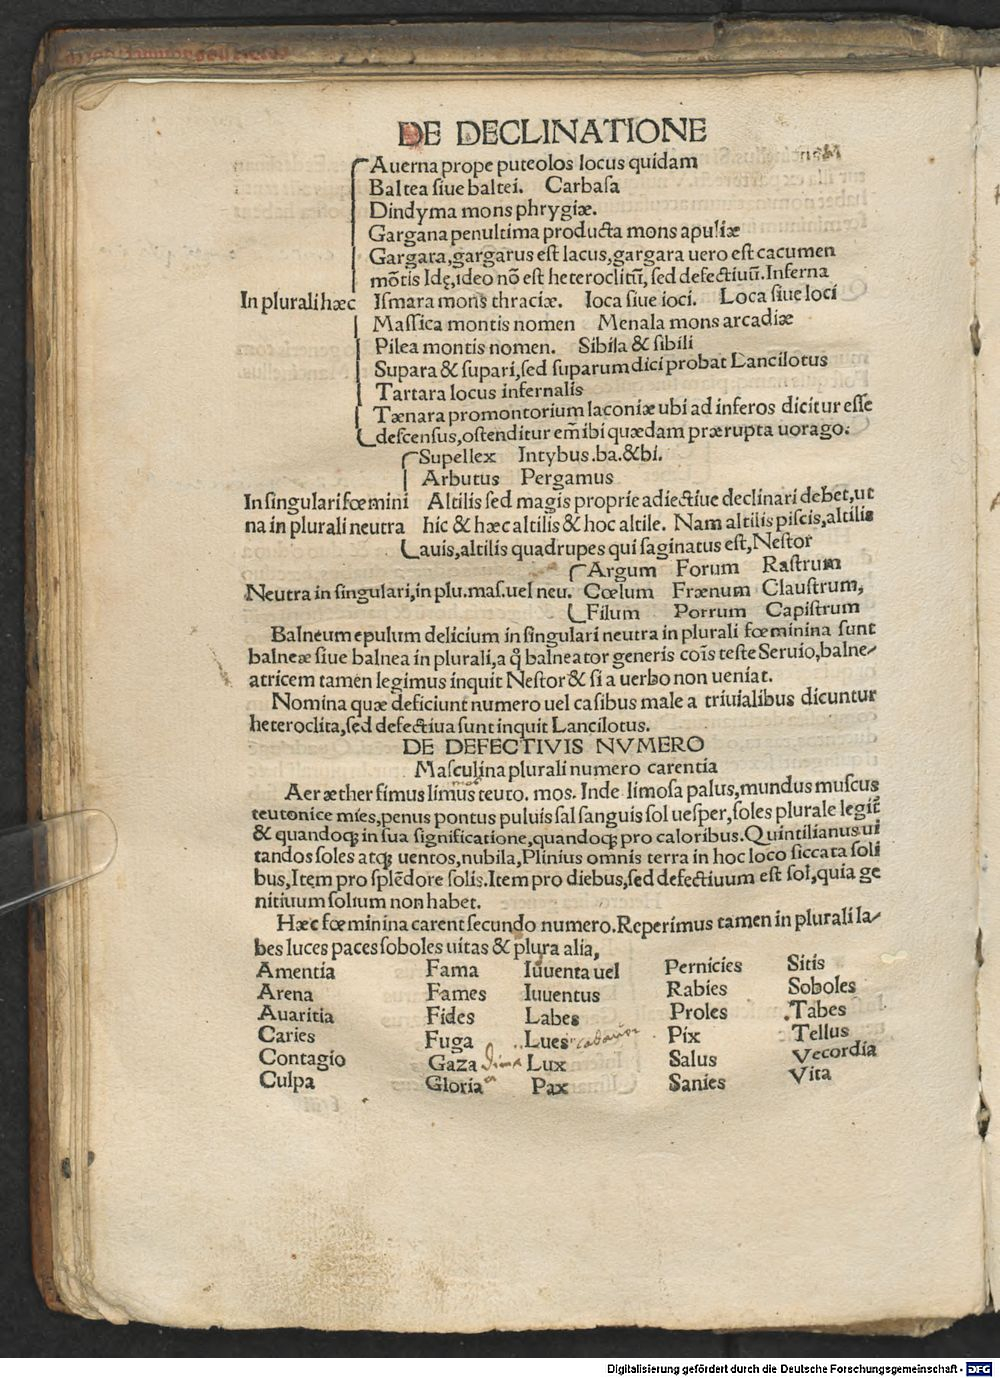 DE DECLINATIONE
Auerna prope puteolos locus quidam
Baltea siue baltei. Carbasa
Dindyma mons phrygiæ.
Gargana penultima producta mons apuliæ
Gargara, gargarus est lacus, gargara uero est cacumen
mõtis Idę, ideo nõ est heteroclitũ, sed defectiuũ. Inferna
In plurali hæc Ismara mons thraciæ. Ioca siue ioci. Loca siue loci
Massica montis nomen Menala mons arcadiæ
Pilea montis nomen. Sibila & sibili
Supara & supari, sed suparum dici probat Lancilotus
Tartara locus infernalis
Tænara promontorium laconiæ ubi ad inferos dicitur esse
descensus, ostenditur em̃ ibi quædam prærupta uorago.
Supellex Intybus .ba. & bi.
Arbutus Pergamus
In singulari fœmini Altilis sed magis proprie adiectiue declinari debet, ut
na in plurali neutra hic & hæc altilis & hoc altile. Nam altilis piscis, altilis
auis, altilis quadrupes qui saginatus est, Nestor
Argum Forum Rastrum
Neutra in singulari, in plu. mas. uel neu. Cœlum Frænum Claustrum,
Filum Porrum Capistrum
Balneum epulum delicium in singulari neutra in plurali fœminina sunt
balneæ siue balnea in plurali, a q̃ balneator generis cõis teste Seruio, balne-
atricem tamen legimus inquit Nestor & si a uerbo non ueniat.
Nomina quæ deficiunt numero uel casibus male a triuialibus dicuntur
heteroclita, sed defectiua sunt inquit Lancilotus.
DE DEFECTIVIS NVMERO
Masculina plurali numero carentia
Aer æther fimus limus teuto. mos. Inde limosa palus, mundus muscus
teutonice mies, penus pontus puluis sal sanguis sol uesper, soles plurale legit̃
& quandoq; in sua significatione, quandoq; pro caloribus. Quintilianus ui
tandos soles atq; uentos, nubila, Plinius omnis terra in hoc loco siccata soli
bus, Item pro splẽdore solis. Item pro diebus, sed defectiuum est sol, quia ge
nitiuum solium non habet.
Hæc fœminina carent secundo numero. Reperimus tamen in plurali la-
bes luces paces soboles uitas & plura alia,
Amentia Fama Iuuenta uel Pernicies Sitis
Arena Fames Iuuentus Rabies Soboles
Auaritia Fides Labes Proles Tabes
Caries Fuga Lues Pix Tellus
Contagio Gaza Lux Salus Vecordia
Culpa Gloria Pax Sanies Vita
Digitalisierung gefördert durch die Deutsche Forschungsgemeinschaft - DFG